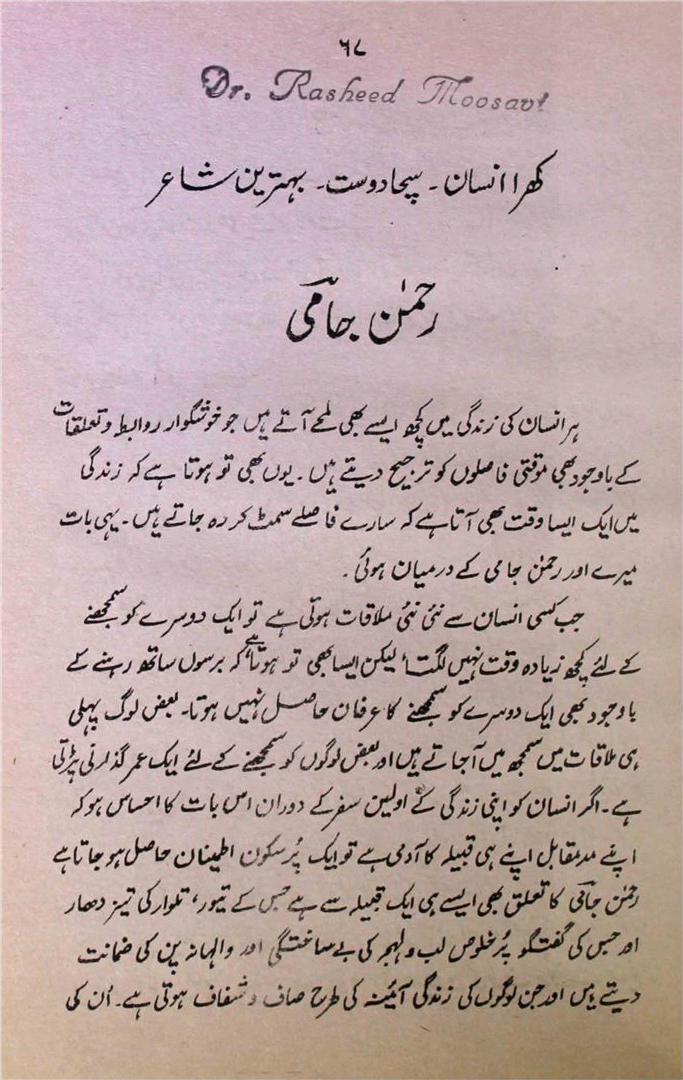 ۶۷
Dr. Rasheed Moosavi
کھرا انسان ۔ سچا دوست ۔ بہترین شاعر
رحمٰن جامی
ہر انسان کی زندگی میں کچھ ایسے بھی لمحے آتے ہیں جو خوشگوار روابط و تعلقات
کے باوجود بھی موقتی فاصلوں کو ترجیح دیتے ہیں ۔ یوں بھی تو ہوتا ہے کہ زندگی
میں ایک ایسا وقت بھی آتا ہے کہ سارے فاصلے سمٹ کر رہ جاتے ہیں ۔ یہی بات
میرے اور رحمٰن جامی کے درمیان ہوئی ۔
جب کسی انسان سے نئی نئی ملاقات ہوتی ہے تو ایک دوسرے کو سمجھنے
کے لئے کچھ زیادہ وقت نہیں لگتا، لیکن ایسا بھی تو ہوتا ہے کہ برسوں ساتھ رہنے کے
باوجود بھی ایک دوسرے کو سمجھنے کا عرفان حاصل نہیں ہوتا۔ بعض لوگ پہلی
ہی ملاقات میں سمجھ میں آجاتے ہیں اور بعض لوگوں کو سمجھنے کے لئے ایک عمر گذارنی پڑتی
ہے ۔ اگر انسان کو اپنی زندگی کے اولین سفر کے دوران اس بات کا احساس ہو کہ
اپنے مد مقابل اپنے ہی قبیلہ کا آدمی ہے تو ایک پُر سکون اطمینان حاصل ہو جاتا ہے
رحمٰن جامی کا تعلق بھی ایسے ہی ایک قبیلہ سے ہے جس کے تیور، تلوار کی تیز دھار
اور جس کی گفتگو پُر خلوص لب و لہجہ کی بے ساختگی اور والہانہ پن کی ضمانت
دیتے ہیں اور جن لوگوں کی زندگی آئینہ کی طرح صاف و شفاف ہوتی ہے ۔ اُن کی